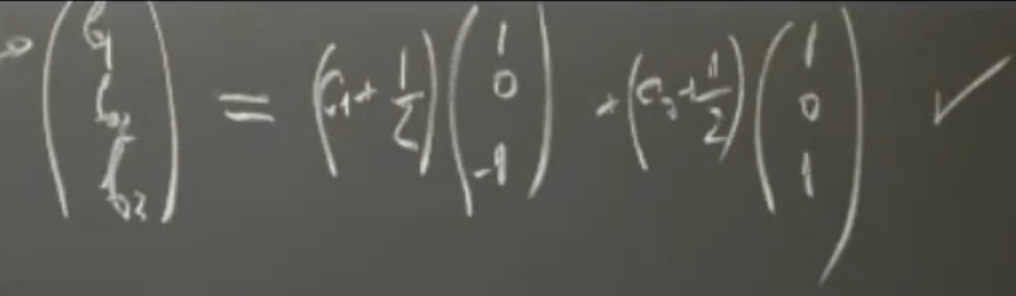 → (b₁ b₂ b₃) = (c₁ + 1/2) (1 0 -1) + (c₃ + 1/2) (1 0 1) ✓